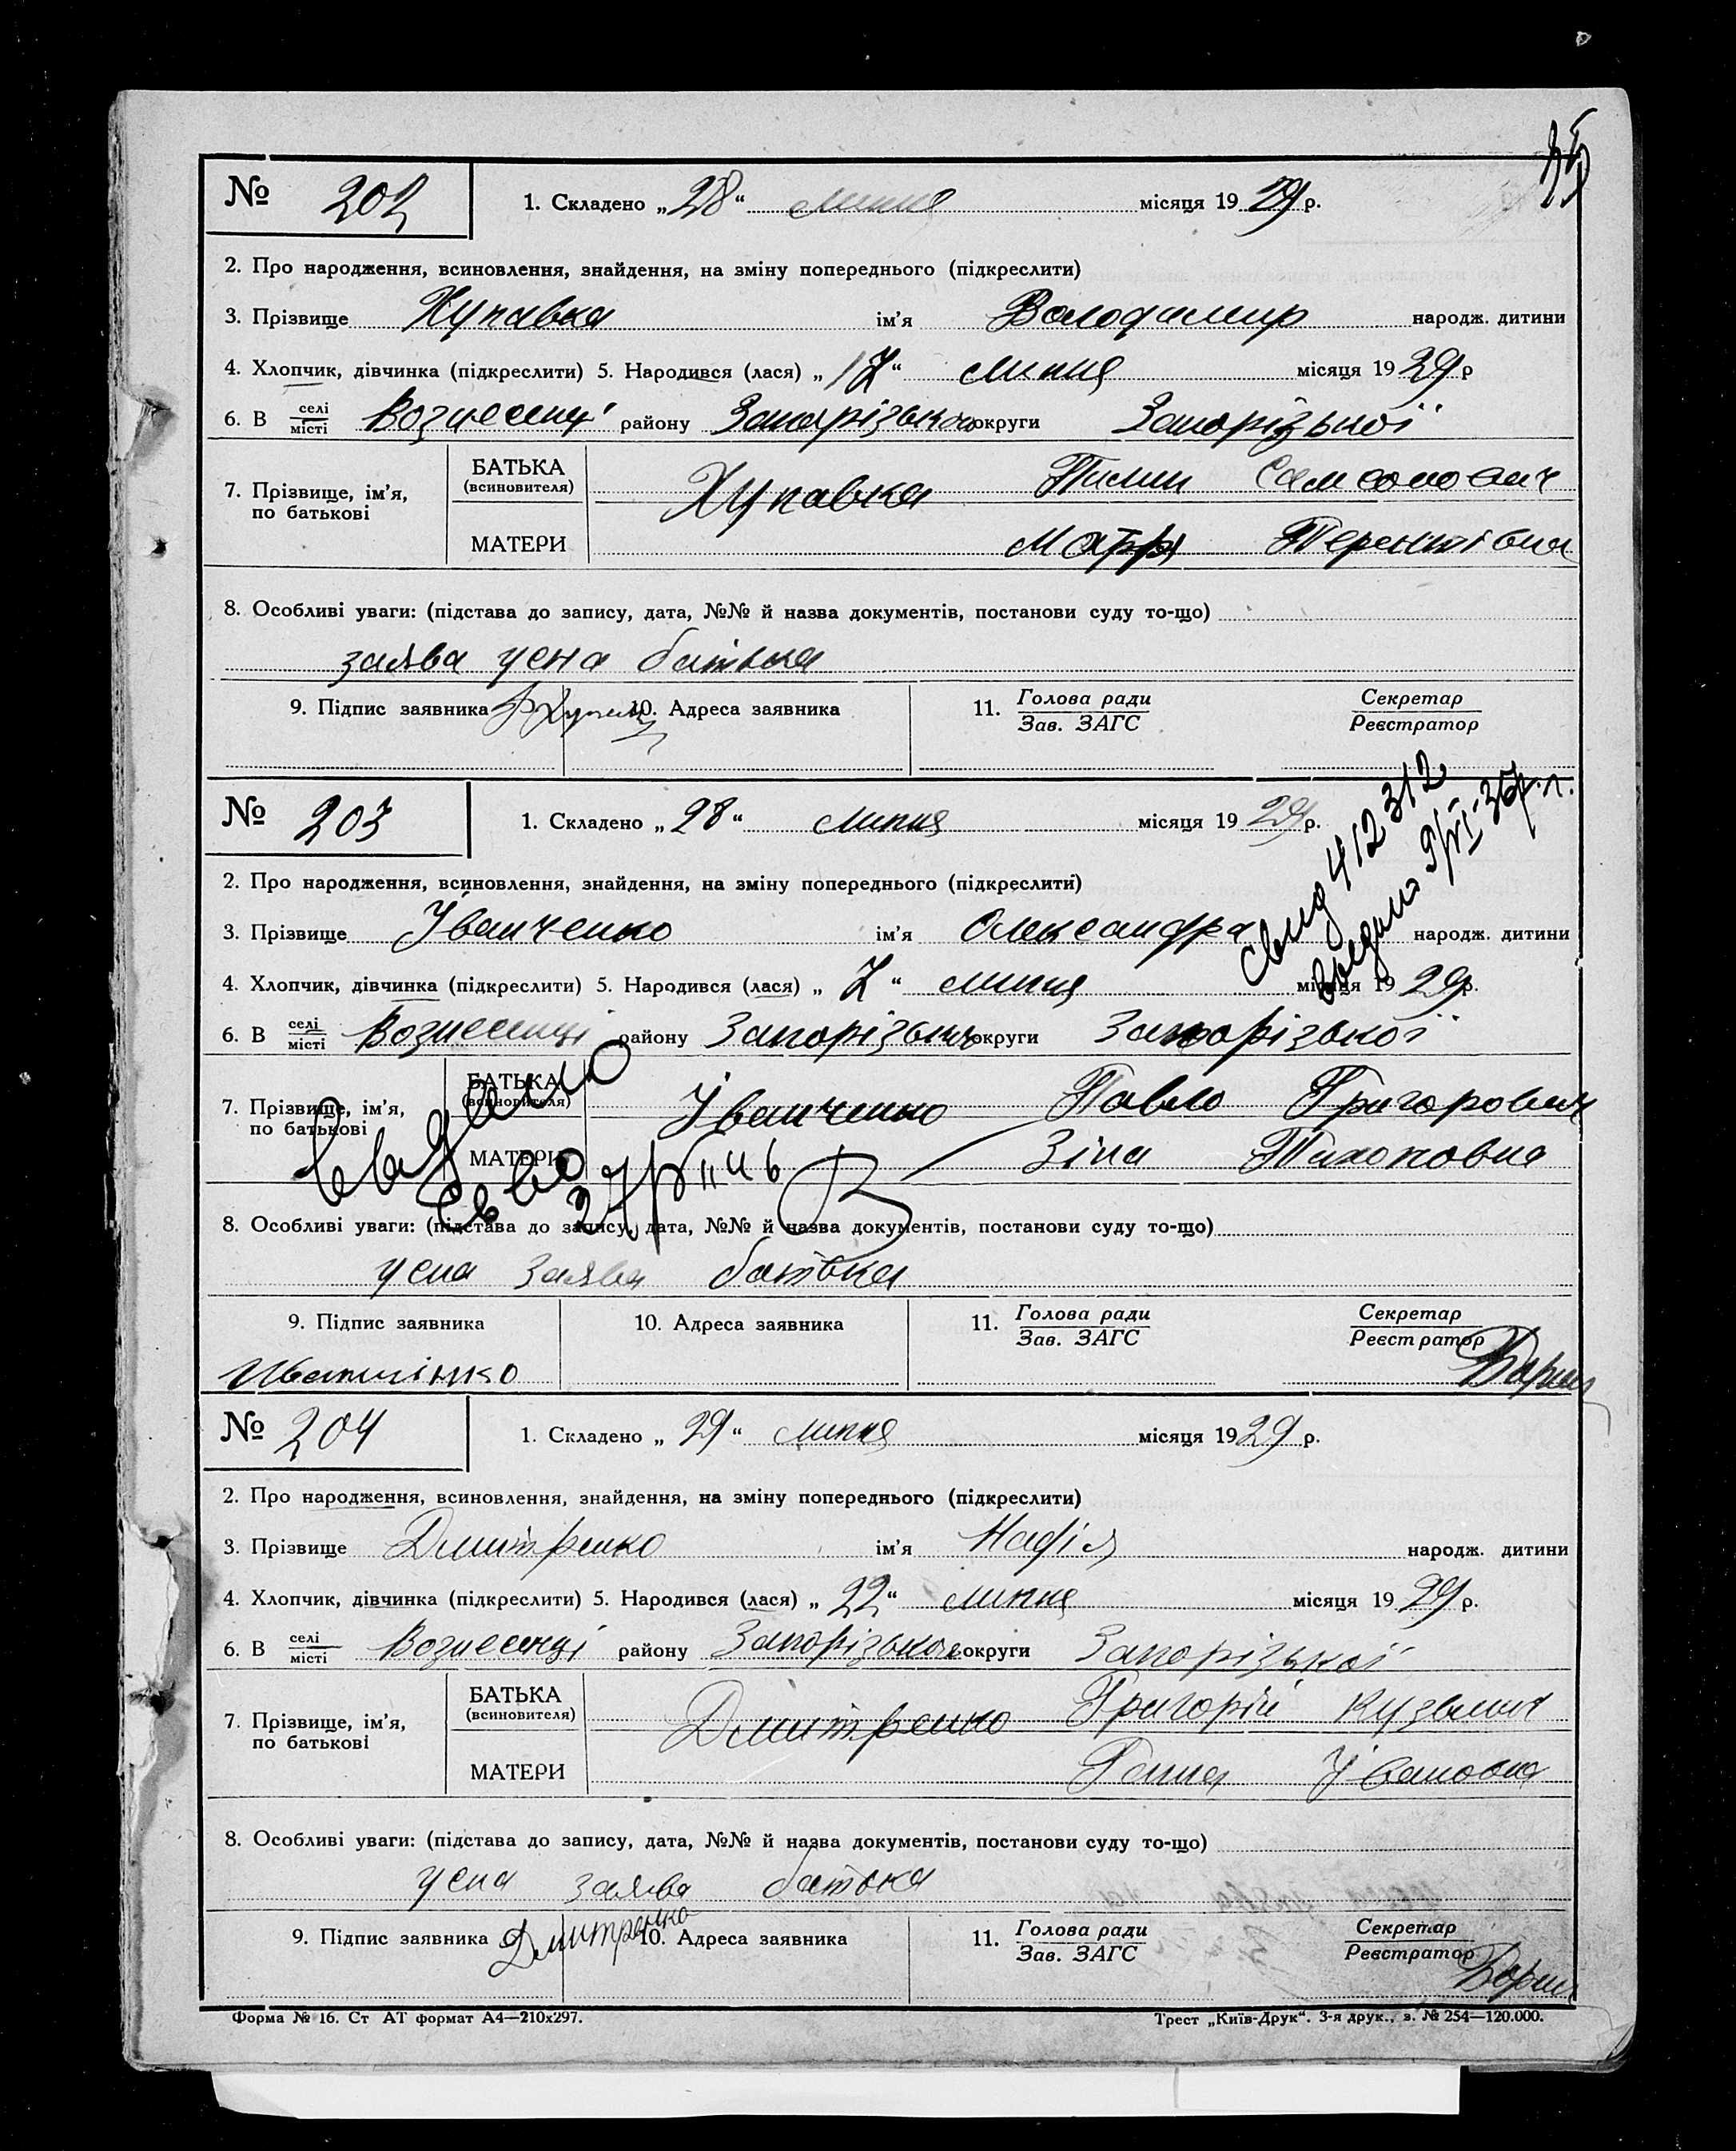 № 202 1. Складено „28“ липня місяця 1929 р.
2. Про народження, всиновлення, знайдення, на зміну попереднього (підкреслити)
3. Прізвище Хупавка ім’я Володимир народж. дитини
4. Хлопчик, дівчинка (підкреслити) 5. Народився (лася) „17“ липня місяця 1929 р
6. В селі місті Вознесенці району Запорізького округи Запорізької
7. Прізвище, ім’я, по батькові
БАТЬКА (всиновителя) Хупавка Пилип Самсонович
МАТЕРИ Марфа Терентівна
8. Особливі уваги: (підстава до запису, дата, №№ й назва документів, постанови суду то-що)
заява усна батька
9. Підпис заявника 10. Адреса заявника 11. Голова ради Зав. ЗАГС Секретар Реєстратор
№ 203 1. Складено „28“ липня місяця 1929 р.
2. Про народження, всиновлення, знайдення, на зміну попереднього (підкреслити)
3. Прізвище Іванченко ім’я Олександра народж. дитини
свид 412312
4. Хлопчик, дівчинка (підкреслити) 5. Народився (лася) „7“ липня місяця 1929 р.
6. В селі місті Вознесенці району Запорізького округи Запорізької
7. Прізвище, ім’я, по батькові
БАТЬКА (всиновителя) Іванченко Павло Григорович
МАТЕРИ Зіна Тихоновна
8. Особливі уваги: (підстава до запису, дата, №№ й назва документів, постанови суду то-що)
усна заява батька
9. Підпис заявника 10. Адреса заявника 11. Голова ради Зав. ЗАГС Секретар Реєстратор
№ 204 1. Складено „29“ липня місяця 1929 р.
2. Про народження, всиновлення, знайдення, на зміну попереднього (підкреслити)
3. Прізвище Дмитренко ім’я Надія народж. дитини
4. Хлопчик, дівчинка (підкреслити) 5. Народився (лася) „22“ липня місяця 1929 р.
6. В селі місті Вознесенці району Запорізького округи Запорізької
7. Прізвище, ім’я, по батькові
БАТЬКА (всиновителя) Дмитренко Григорій Кузьмич
МАТЕРИ Ганна Івановна
8. Особливі уваги: (підстава до запису, дата, №№ й назва документів, постанови суду то-що)
усна заява батька
9. Підпис заявника Дмитренко 10. Адреса заявника 11. Голова ради Зав. ЗАГС Секретар Реєстратор
Форма № 16. Ст АТ формат А4—210x297. Трест „Київ-Друк“. 3-я друк., з. № 254—120.000.